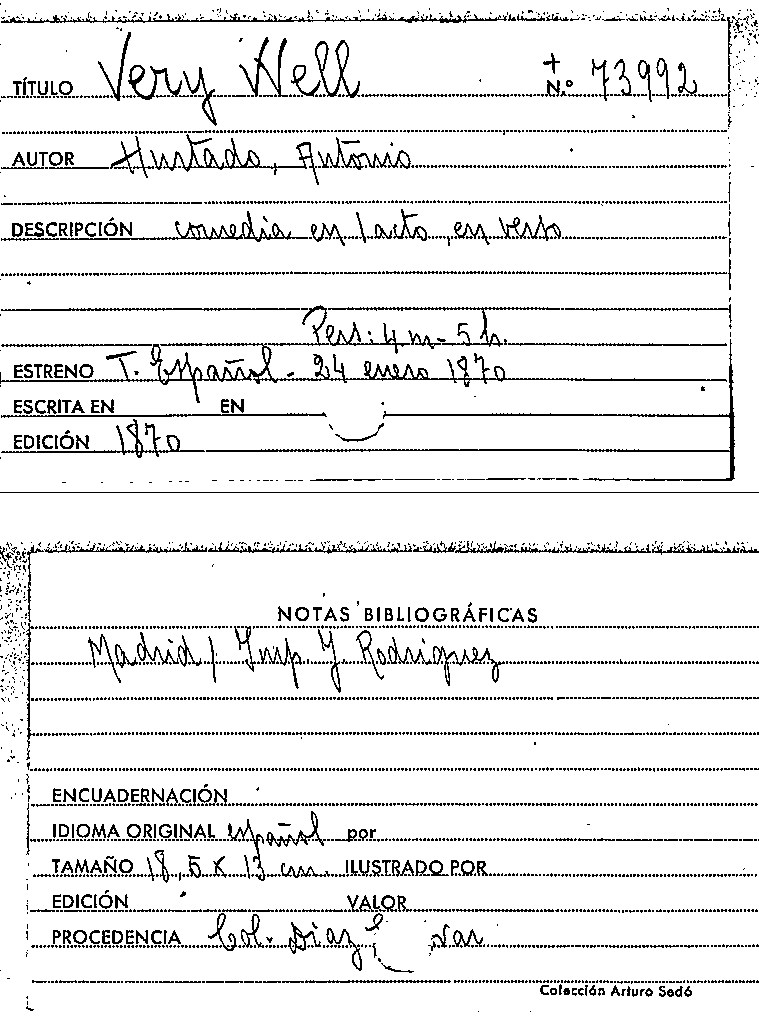 TÍTULO Very Well + N.º 73992
AUTOR Hurtado, Antonio
DESCRIPCIÓN comedia en 1 acto, en verso
Pers: 4 m - 5 h.
ESTRENO T. Español - 24 enero 1870
ESCRITA EN EN
EDICIÓN 1870
NOTAS BIBLIOGRÁFICAS
Madrid / Imp J. Rodriguez
ENCUADERNACIÓN
IDIOMA ORIGINAL español por
TAMAÑO 18,5 X 13 cm. ILUSTRADO POR
EDICIÓN VALOR
PROCEDENCIA Col. Diaz
Colección Arturo Sedó